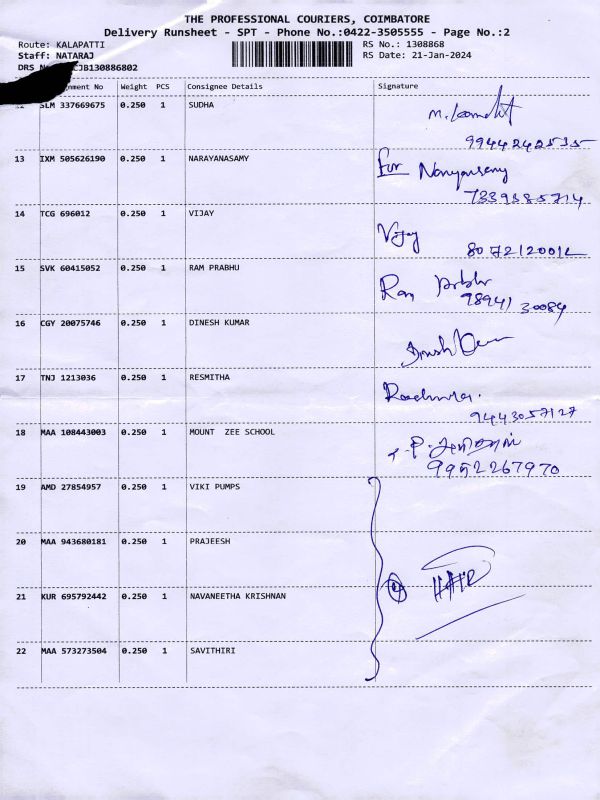 THE PROFESSIONAL COURIERS, COIMBATORE
Delivery Runsheet - SPT - Phone No.:0422-3505555 - Page No.:2
Route: KALAPATTI
Staff: NATARAJ
RS No.: 1308868
RS Date: 21-Jan-2024
DRS CJB130886802
gnment No Weight PCS Consignee Details Signature
SLM 337669675 0.250 1 SUDHA
9944242535
13 IXM 505626190 0.250 1 NARAYANASAMY For
7339385714
14 TCG 696012 0.250 1 VIJAY Vijay
15 SVK 60415052 0.250 1 RAM PRABHU Ram
98941 30084
16 CGY 20075746 0.250 1 DINESH KUMAR
17 TNJ 1213036 0.250 1 RESMITHA
9443057127
18 MAA 108443003 0.250 1 MOUNT ZEE SCHOOL
9952267970
19 AMD 27854957 0.250 1 VIKI PUMPS
20 MAA 943680181 0.250 1 PRAJEESH
21 KUR 695792442 0.250 1 NAVANEETHA KRISHNAN
22 MAA 573273504 0.250 1 SAVITHIRI